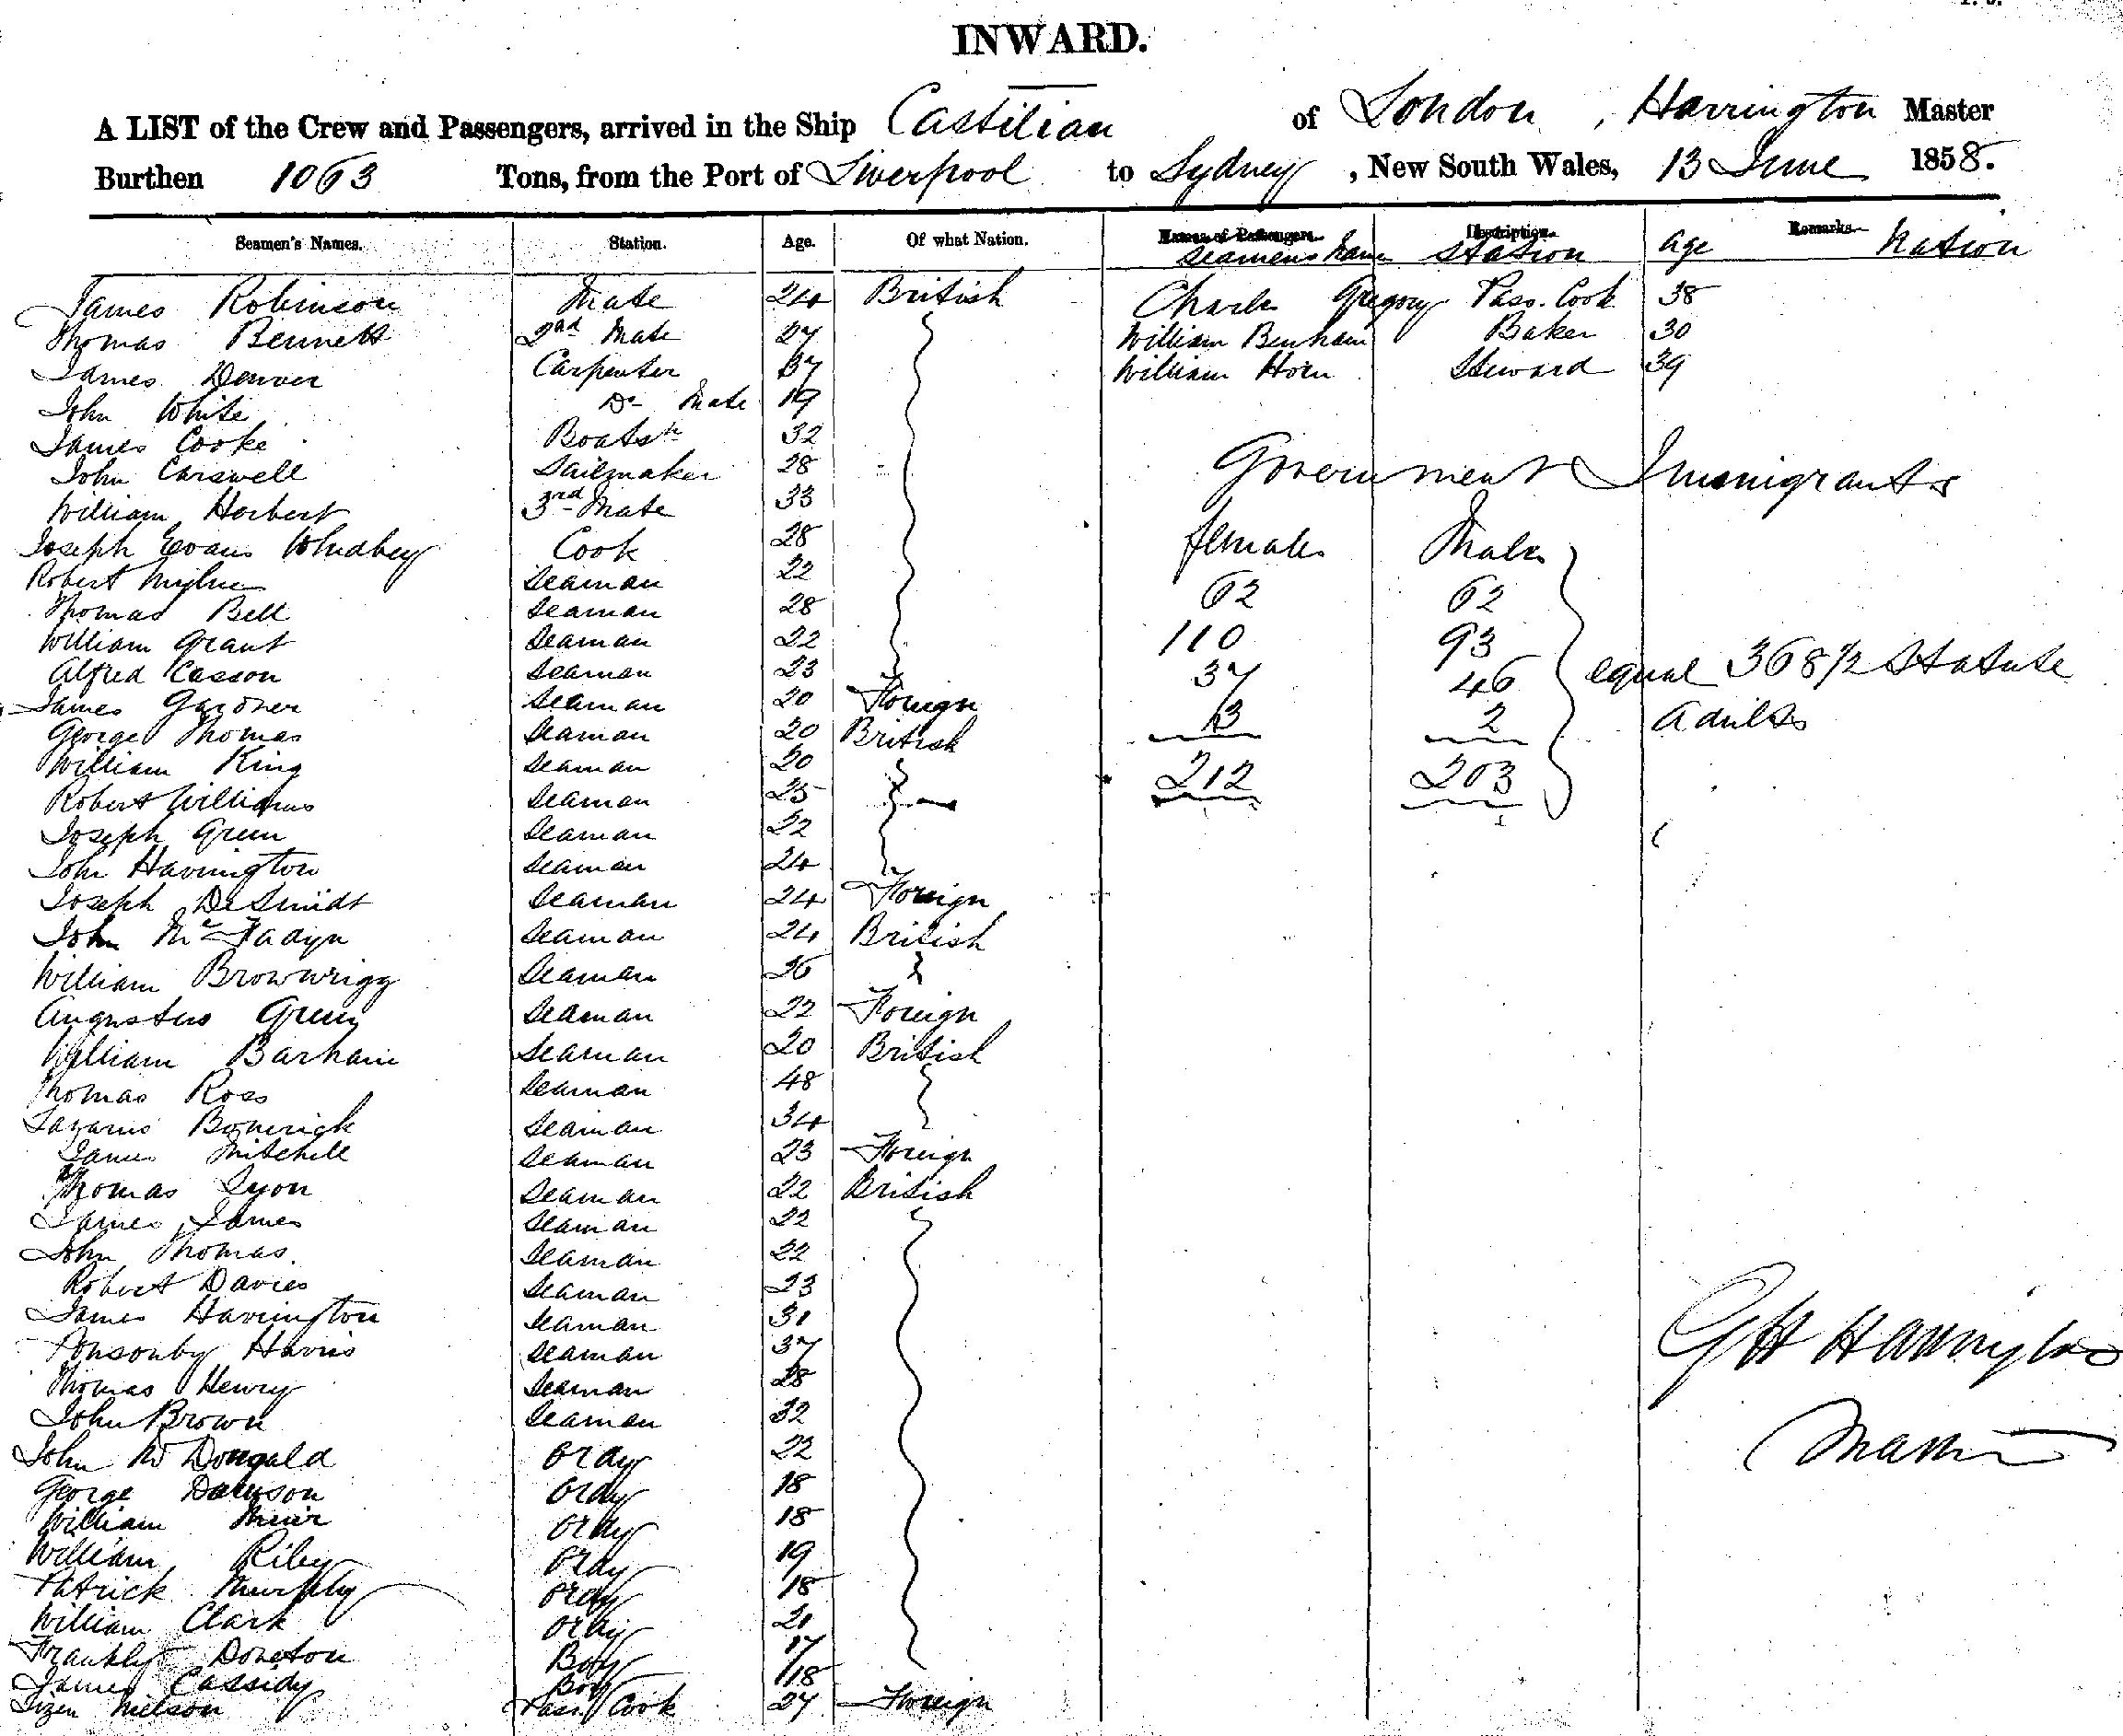 INWARD.
A LIST of the Crew and Passengers, arrived in the Ship Castilian of London, Harrington Master
Burthen 1063 Tons, from the Port of Liverpool to Sydney, New South Wales, 13 June 1858.
Seamen's Names. Station. Age. Of what Nation. Names of Passengers. Description. Remarks.
Seamens Name Station Age Nation
James Robinson Mate 24 British Charles Gregory Pass. Cook 38
Thomas Bennett 2nd Mate 27 William Benham Baker 30
James Denver Carpenter 37 William Horn Steward 39
John White Do Mate 19
James Cooke Boatsn 32
John Carswell Sailmaker 28
Government Immigrants
William Herbert 3rd Mate 33
Joseph Evans Whidbey Cook 28 females Males
Robert Mylne Seaman 22 62 62
Thomas Bell Seaman 28
William Grant Seaman 22 110 93
Alfred Casson Seaman 23 37 46 equal 368 1/2 Statute
James Gardner Seaman 20 Foreign 3 2 Adults
George Thomas Seaman 20 British
William King Seaman 20 212 203
Robert Williams Seaman 25
Joseph Green Seaman 22
John Harrington Seaman 24
Joseph DeSmidt Seaman 24 Foreign
John McFadyn Seaman 24 British
William Brownrigg Seaman 26
Augustus Green Seaman 22 Foreign
William Barham Seaman 20 British
Thomas Ross Seaman 48
Lazarus Seaman 34
James Mitchell Seaman 23 Foreign
Thomas Lyon Seaman 22 British
James James Seaman 22
John Thomas Seaman 22
Robert Davies Seaman 23
James Harrington Seaman 31
Ponsonby Harris Seaman 37 G H Harrington
Thomas Henry Seaman 28
John Brown Seaman 32
John McDougald Ordy 22 Master
George Dawson Ordy 18
William Ordy 18
William Riley Ordy 19
Patrick Murphy Ordy 18
William Clark Ordy 21
Franklyn Boy 17
James Cassidy Boy 18
Nelson Pass. Cook 27 Foreign